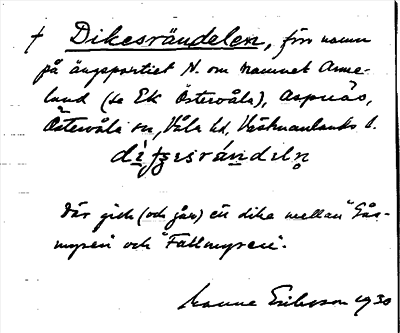 † Dikesrändelen, förr namn
på ängspartiet N. om namnet Arme-
land (se Ek Östervåla), Aspnäs,
Östervåla sn, Våla hd, Västmanlands l.
där gick (och går) en dike mellan Gås-
myren och Fallmyren.
Manne Eriksson 1930